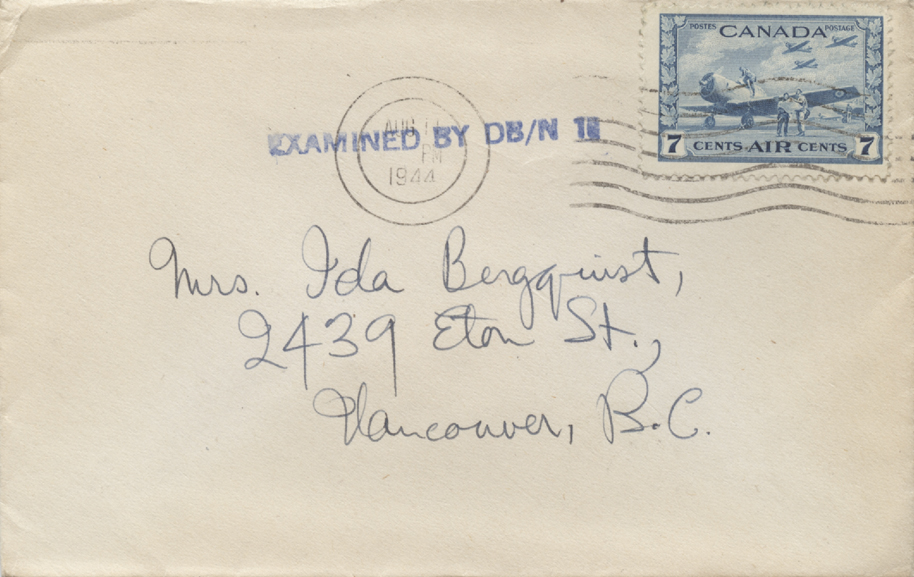 POSTES CANADA POSTAGE
7 CENTS AIR CENTS 7
EXAMINED BY DB/N
AUG
PM
1944
Mrs. Ida Bergquist,
2439 Eton St.,
Vancouver, B.C.